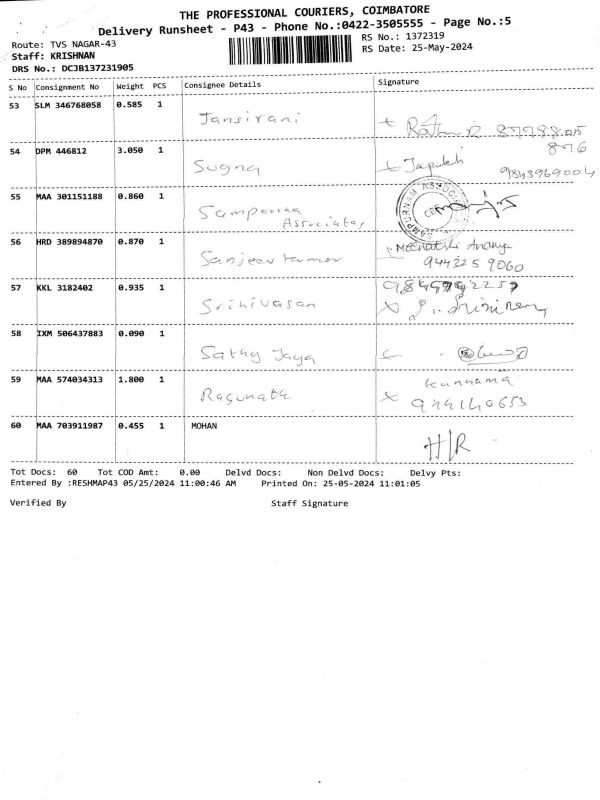 THE PROFESSIONAL COURIERS, COIMBATORE
Delivery Runsheet - P43 - Phone No.:0422-3505555 - Page No.:5
Route: TVS NAGAR-43
RS No.: 1372319
Staff: KRISHNAN
RS Date: 25-May-2024
DRS No.: DCJB137231905
S No Consignment No Weight PCS Consignee Details Signature
53 SLM 346768058 0.585 1 Jansirani
54 DPM 446812 3.050 1 Sugna
9843969004
55 MAA 301151188 0.860 1 Sampoorna
Associates
SAMPURNAM ASSOCIATES
56 HRD 389894870 0.870 1 Sanjeev kumar Meenatchi Ananya
944325 9060
57 KKL 3182402 0.935 1 Srinivasan
58 IXM 506437883 0.090 1 Sathy Jaya
59 MAA 574034313 1.800 1 Ragunath
60 MAA 703911987 0.455 1 MOHAN H/R
Tot Docs: 60 Tot COD Amt: 0.00 Delvd Docs: Non Delvd Docs: Delvy Pts:
Entered By :RESHMAP43 05/25/2024 11:00:46 AM Printed On: 25-05-2024 11:01:05
Verified By Staff Signature